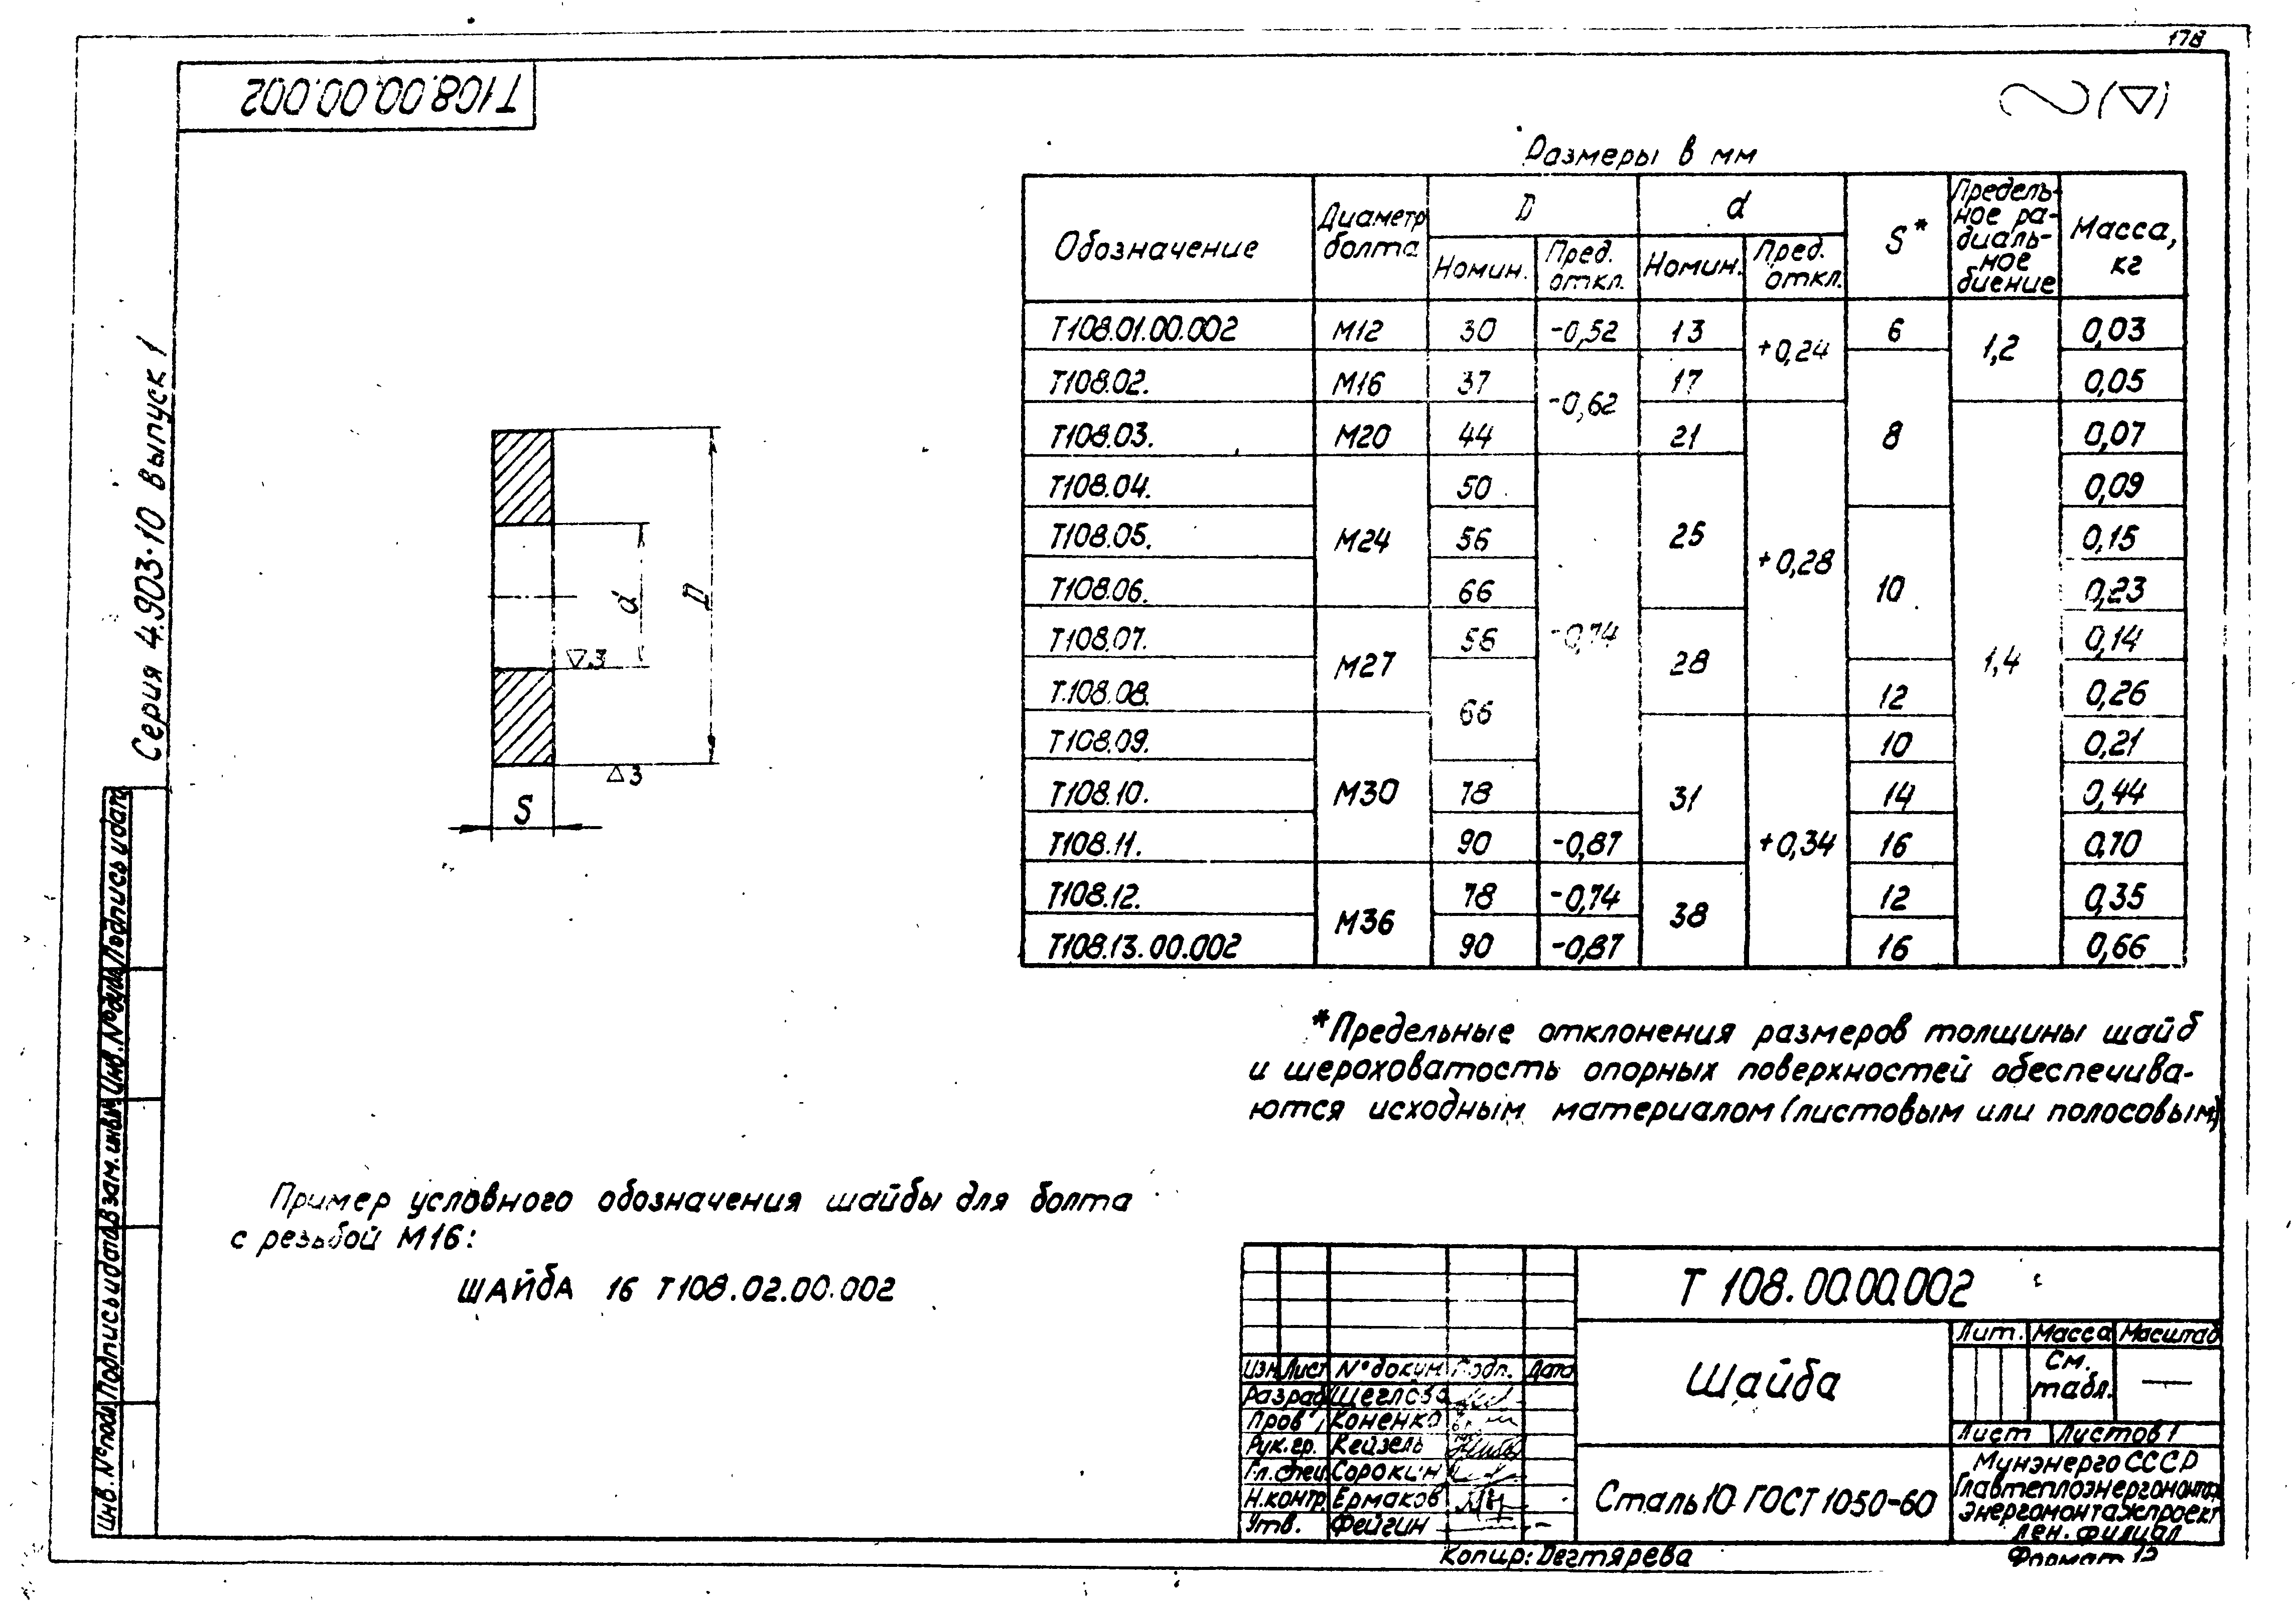 178
Т108.00.00.002
Серия 4.903-10 Выпуск 1
Размеры в мм
Обозначение
Диаметр болта
D
d
S*
Предель-
ное ра-
диаль-
ное
биение
Масса, кг
Номин.
Пред. откл.
Номин.
Пред. откл.
Т108.01.00.002 М12 30 -0,52 13 +0,24 6 1,2 0,03
Т108.02. М16 37 -0,62 17 8 0,05
Т108.03. М20 44 21 +0,28 1,4 0,07
Т108.04. М24 50 -0,74 25 0,09
Т108.05. 56 10 0,15
Т108.06. 66 0,23
Т108.07. М27 56 28 0,14
Т.108.08. 66 12 0,26
Т108.09. М30 31 +0,34 10 0,21
Т108.10. 78 14 0,44
Т108.11. 90 -0,87 16 0,70
Т108.12. М36 78 -0,74 38 12 0,35
Т108.13.00.002 90 -0,87 16 0,66
d
D
▽3
△3
S
*Предельные отклонения размеров толщины шайб
и шероховатость опорных поверхностей обеспечива-
ются исходным материалом (листовым или полосовым)
Пример условного обозначения шайбы для болта
с резьбой М16:
ШАЙБА 16 Т108.02.00.002
Т 108.00.00.002
Шайба
Лит. Масса Масштаб
См. табл. —
Лист Листов 1
Сталь 10 ГОСТ 1050-60
Минэнерго СССР
Главтеплоэнергомонтаж
Энергомонтажпроект
Лен. филиал
Изм Лист № докум Подп. Дата
Разраб Щеглова
Пров. Коненко
Рук.гр. Кейзель
Гл.спец Сорокин
Н.контр. Ермаков
Утв. Фейгин
Копир: Дегтярева
Формат 12
Инв. № подл Подпись и дата Взам. инв. № Инв. № дубл Подпись и дата